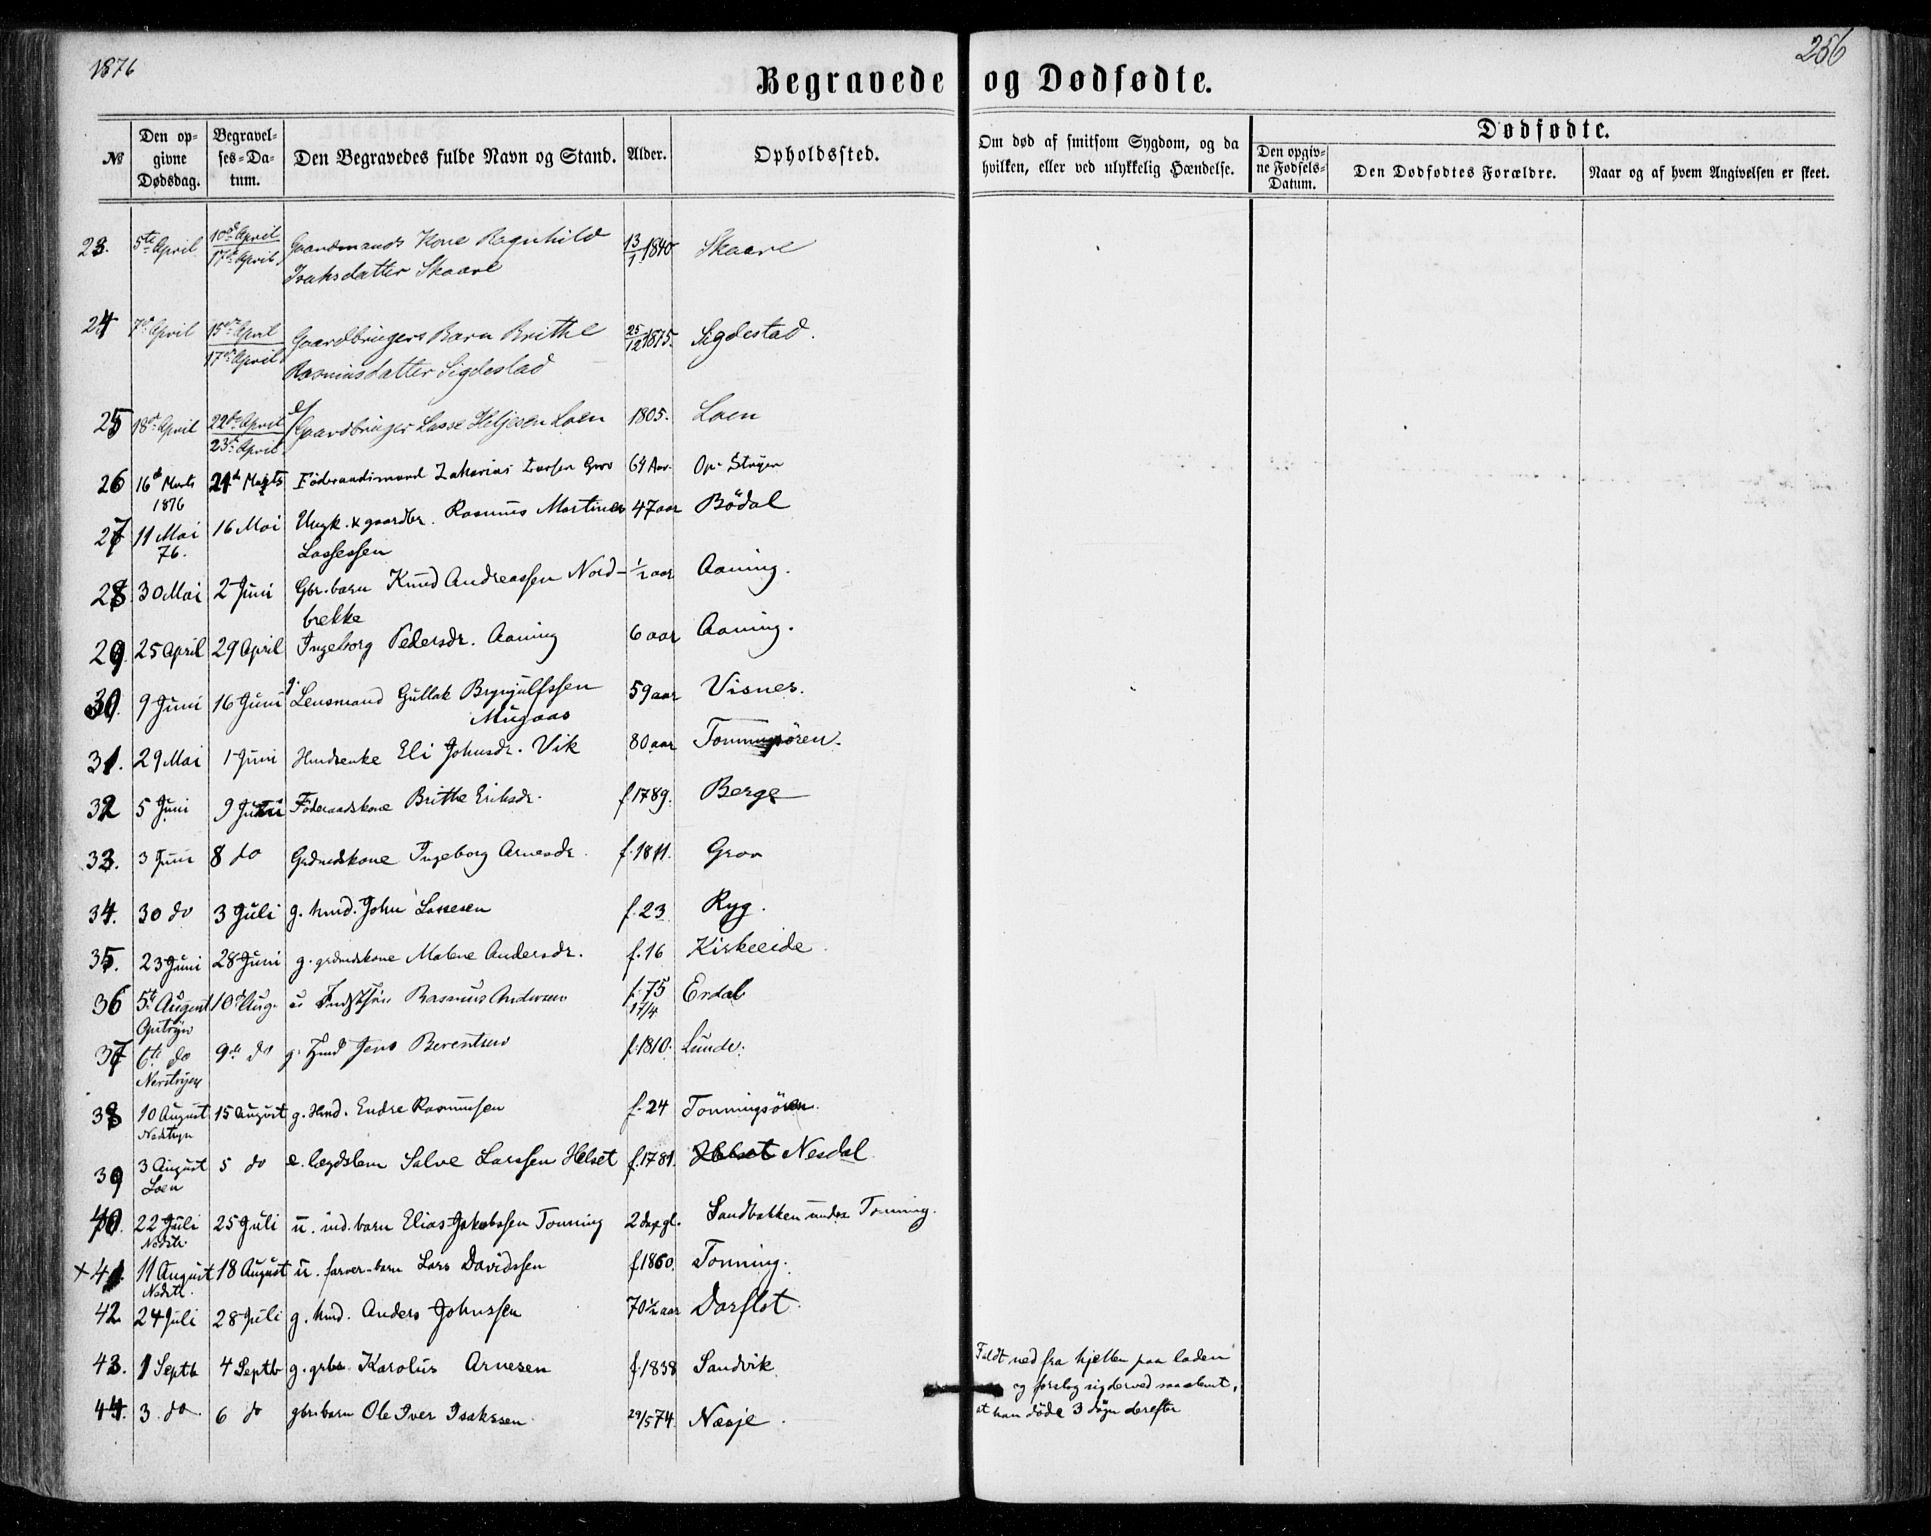 1876
256
Begravede og Dødfødte.
№
Den opgivne Dødsdag.
Begravelses-Datum.
Den Begravedes fulde Navn og Stand.
Alder.
Opholdssted.
Om død af smitsom Sygdom, og da hvilken, eller ved ulykkelig Hændelse.
Dødfødte.
Den opgivne Fødsels-Datum.
Den Dødfødtes Forældre.
Naar og af hvem Angivelsen er skeet.
23. 5te April 10de April Gaardmands Kone Ragnhild 13/1 1840 Skaare
17de April Isaksdatter Skaare
24 7de April 15de April Gaardbrugers Barn Brithe 25/12 1875. Sigdestad.
17de April Rasmusdatter Sigdestad
25 18de April 22de April e/ Gaardbruger Lasse Heljesen Loen 1805. Loen
23de April
26 16de Marts 21de Marts Føderaadsmand Zakarias Iversen Grov 64 Aar. Op. Stryen
1876
27 11 Mai 16 Mai Ungk. & gaardbr. Rasmus Martinus 47 aar Bödal
76. Lassessen
28 30 Mai 2 Juni Gbr. barn Knud Andreassen Nord- 1/2 aar Aaning.
brekke
29. 25 April 29 April Ingeborg Pedersdr. Aaning 6 aar Aaning.
30. 9 Juni 16 Juni g. Lensmand Gullak Brynjulfssen 59 aar Visnes.
Mugaas
31. 29 Mai 1 Juni Hmdsenke Eli Johnsdr. Vik 80 aar Tonningsören.
32 5 Juni 9 Juni Föderaadskone Brithe Eriksdr. f. 1789. Berge
33. 3 Juni 8 do Grdmdskone Ingeborg Arnesdr. f. 1811. Grov
34. 30 do 3 Juli g. hmd. John Lassesen f. 23 Ryg.
35. 23 Juni 28 Juni g. grdmdskone Malene Andersdr. f. 16 Kirkeeide
36 5te August 10de Aug. u Rasmus Andersen f. 75 Erdal
Opstryn 17/4
37 6te do 9de do g. Jens Berentsen f. 1810. Lunde.
Nerstryn
38 10 August 15 August g. hmd. Endre Rasmussen f. 24 Tonningsören.
Nedstryn
39 3 August 5 do e. lægdslem Salve Larssen Helset f. 1781. Helset Nesdal
Loen
40. 22 Juli 25 Juli u. ind. barn Elias Jakobssen Tonning 2 dage gl. Sandbakken under Tonning.
Nedstr.
× 41. 11 August 18 August u. farver-barn Lars Davidssen f. 1860. Tonning.
Nedstr.
42. 24 Juli 28 Juli g. hmd. Anders Johnssen 70 1/2 aar Dorflot.
43. 1 Septb 4 Septb g. grbr. Karolus Arnesen f. 1838 Sandvik
Faldt ned fra hjellen paa laden
og forslog sig derved saa slemt,
at han döde 3 dögn derefter
44. 3 do 6 do gbr. barn Ole Iver Isakssen 29/5 74. Næsje.